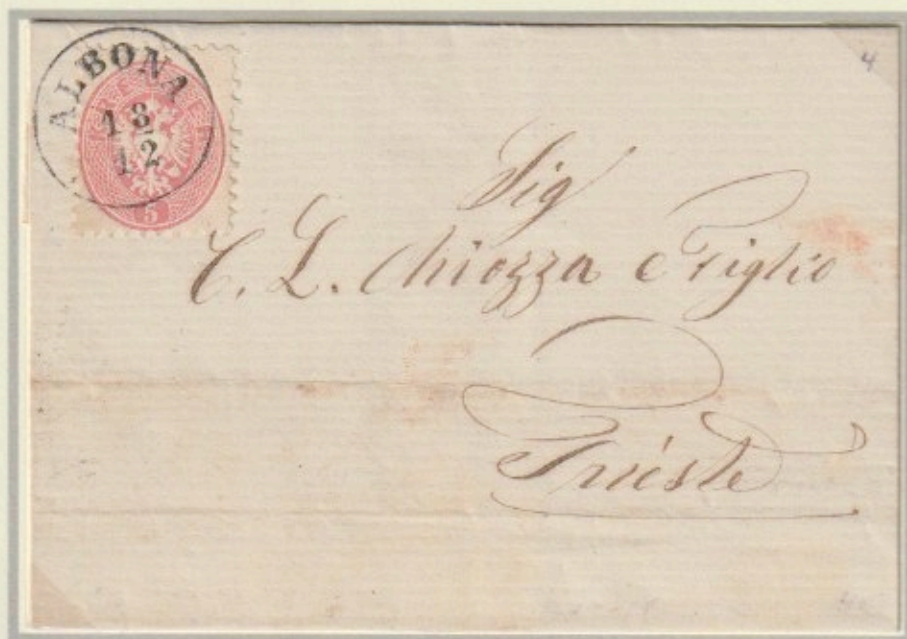 ALBONA
18
12
5
4
Sig
C. L. Chiozza e Figlio
Trieste